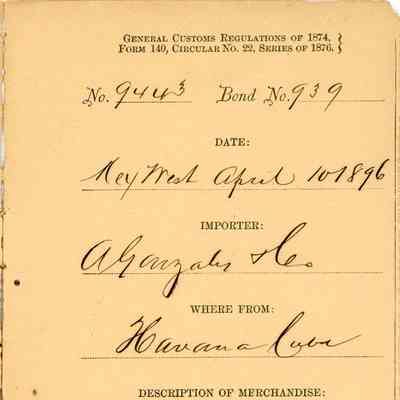 GENERAL CUSTOMS REGULATIONS OF 1874,
FORM 140, CIRCULAR NO. 22, SERIES OF 1876.
No. 9443 Bond No. 939
DATE:
Key West April 10 1896
IMPORTER:
A Gonzales & Co
WHERE FROM:
Havana Cuba
DESCRIPTION OF MERCHANDISE: